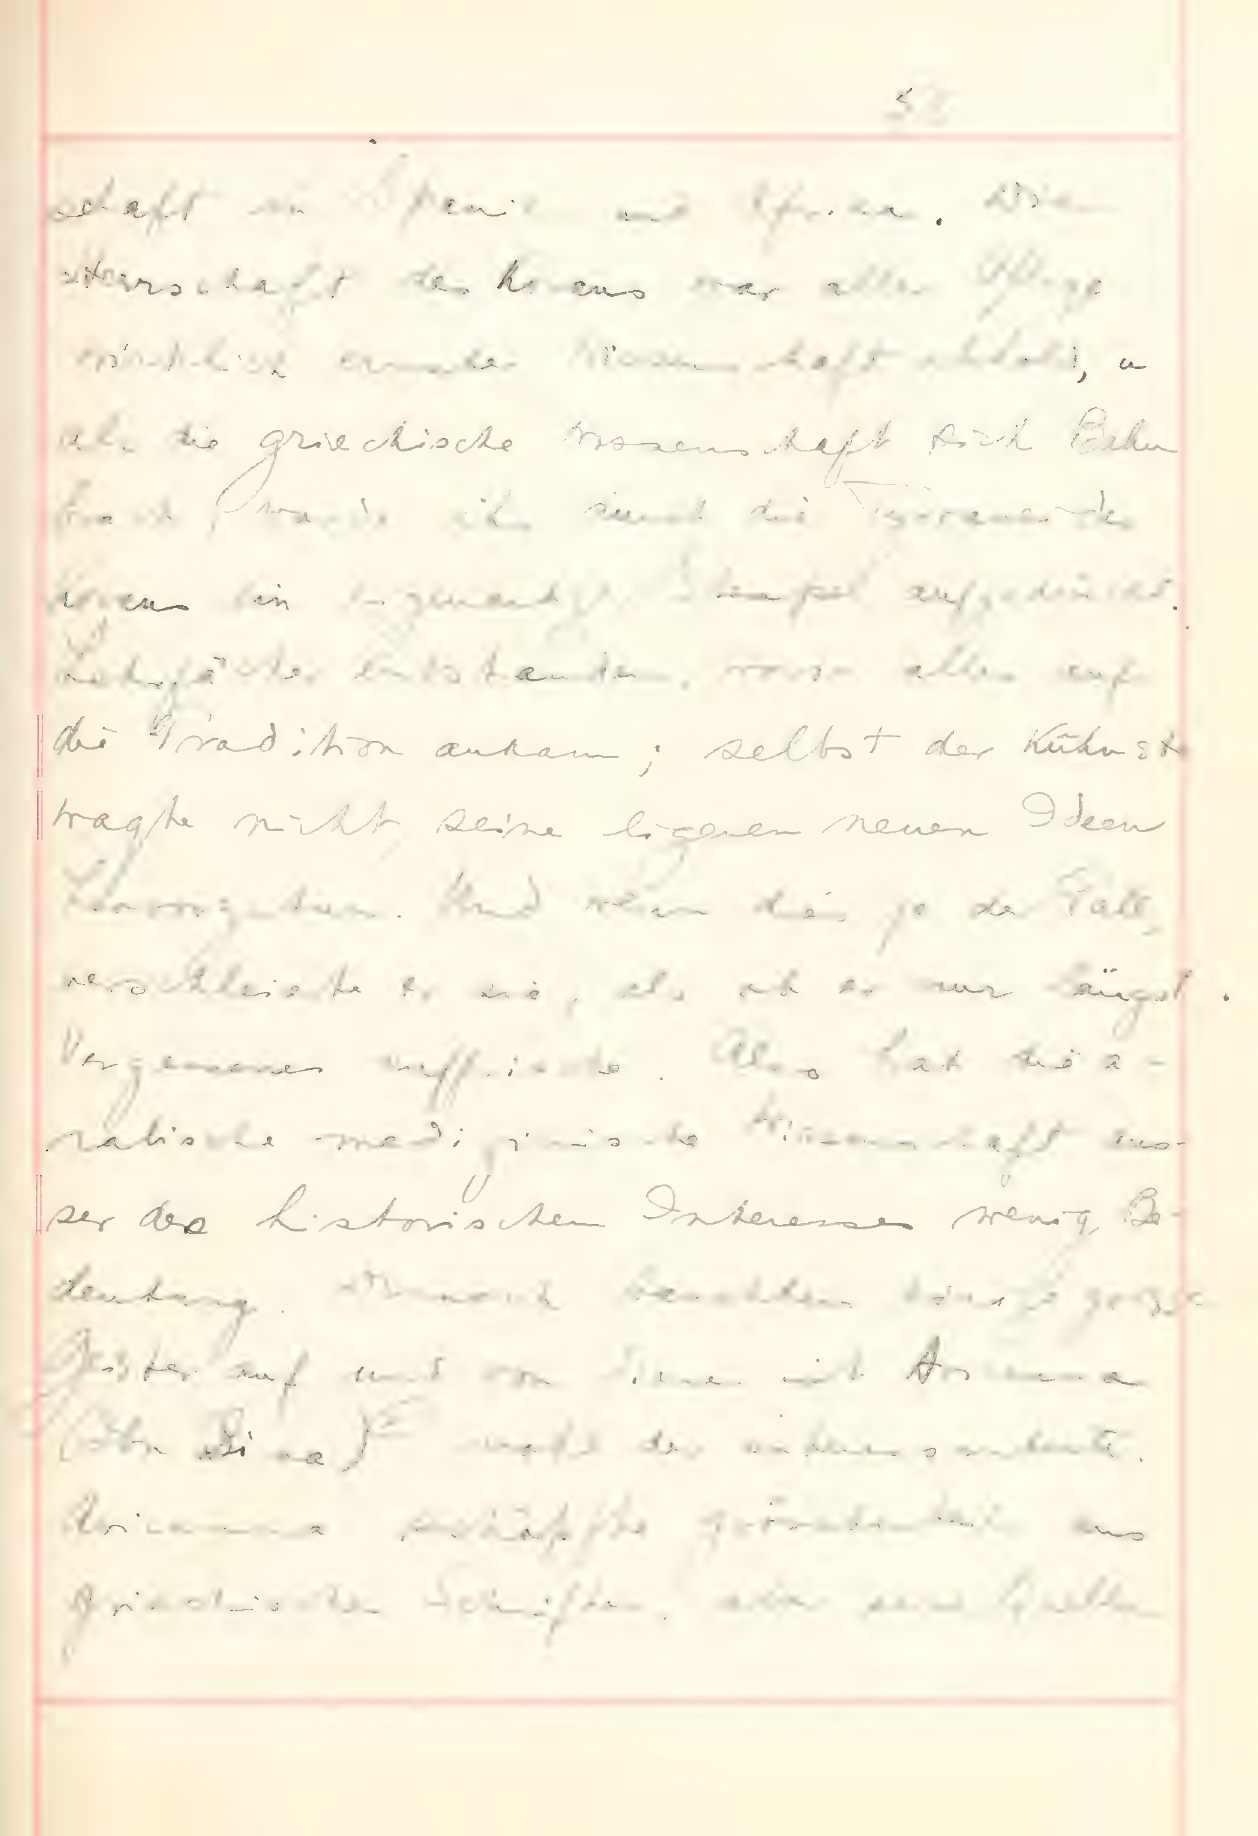 schaft in Spanien und Afrika. Die
Herrschaft des Korans war aller Pflege
wirklich ernster Wissenschaft abhold, u
als die griechische Wissenschaft sich Bahn
brach, wurde ihr durch die des
Korans ein Stempel aufgedrückt.
Lehrgebäude entstanden, worin alles auf
die Tradition ankam; selbst der Kühnste
wagte nicht seine eigenen neuen Ideen
Und wenn dies je der Fall,
verschleierte er sie, als ob er nur längst
Vergessenes auffrische. Also hat die a-
rabische medizinische Wissenschaft aus-
ser des historischen Interesses wenig Be-
deutung. Dennoch tauchten einige grosse
Geister auf und von ihnen ist Avicenna
(Ibn Sina) wohl der interessanteste.
Avicenna schöpfte grösstenteils aus
griechischen Schriften, aber seine Quellen